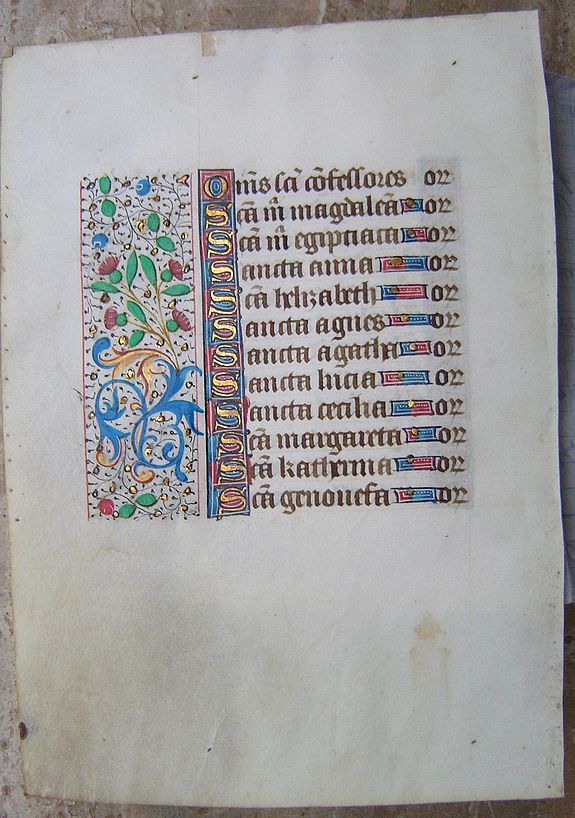 Om̄s sc̄i cōfessores or
Sc̄a m̄ magdalēa or
Sc̄a m̄ egiptiaca or
Sancta anna or
Sc̄a helizabeth or
Sancta agnes or
Sancta agatha or
Sancta lucia or
Sancta cecilia or
Sc̄a margareta or
Sc̄a katherina or
Sc̄a genouefa or